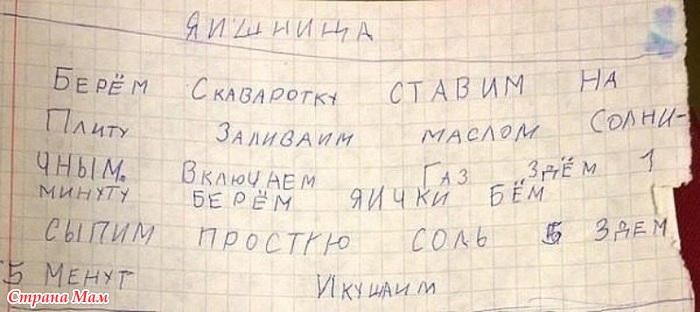 ЯИШНИЦА
БЕРЁМ СКАВАРОТКУ СТАВИМ НА
ПЛИТУ ЗАЛИВАИМ МАСЛОМ СОЛНИ-
ЧНЫМ. ВКЛЮЧАЕМ ГАЗ ЗДЁМ 1
МИНУТУ БЕРЁМ ЯИЧКИ БЁМ
СЫПИМ ПРОСТКЮ СОЛЬ 5 ЗДЕМ
5 МЕНУТ ИКУШАИМ
Страна Мам